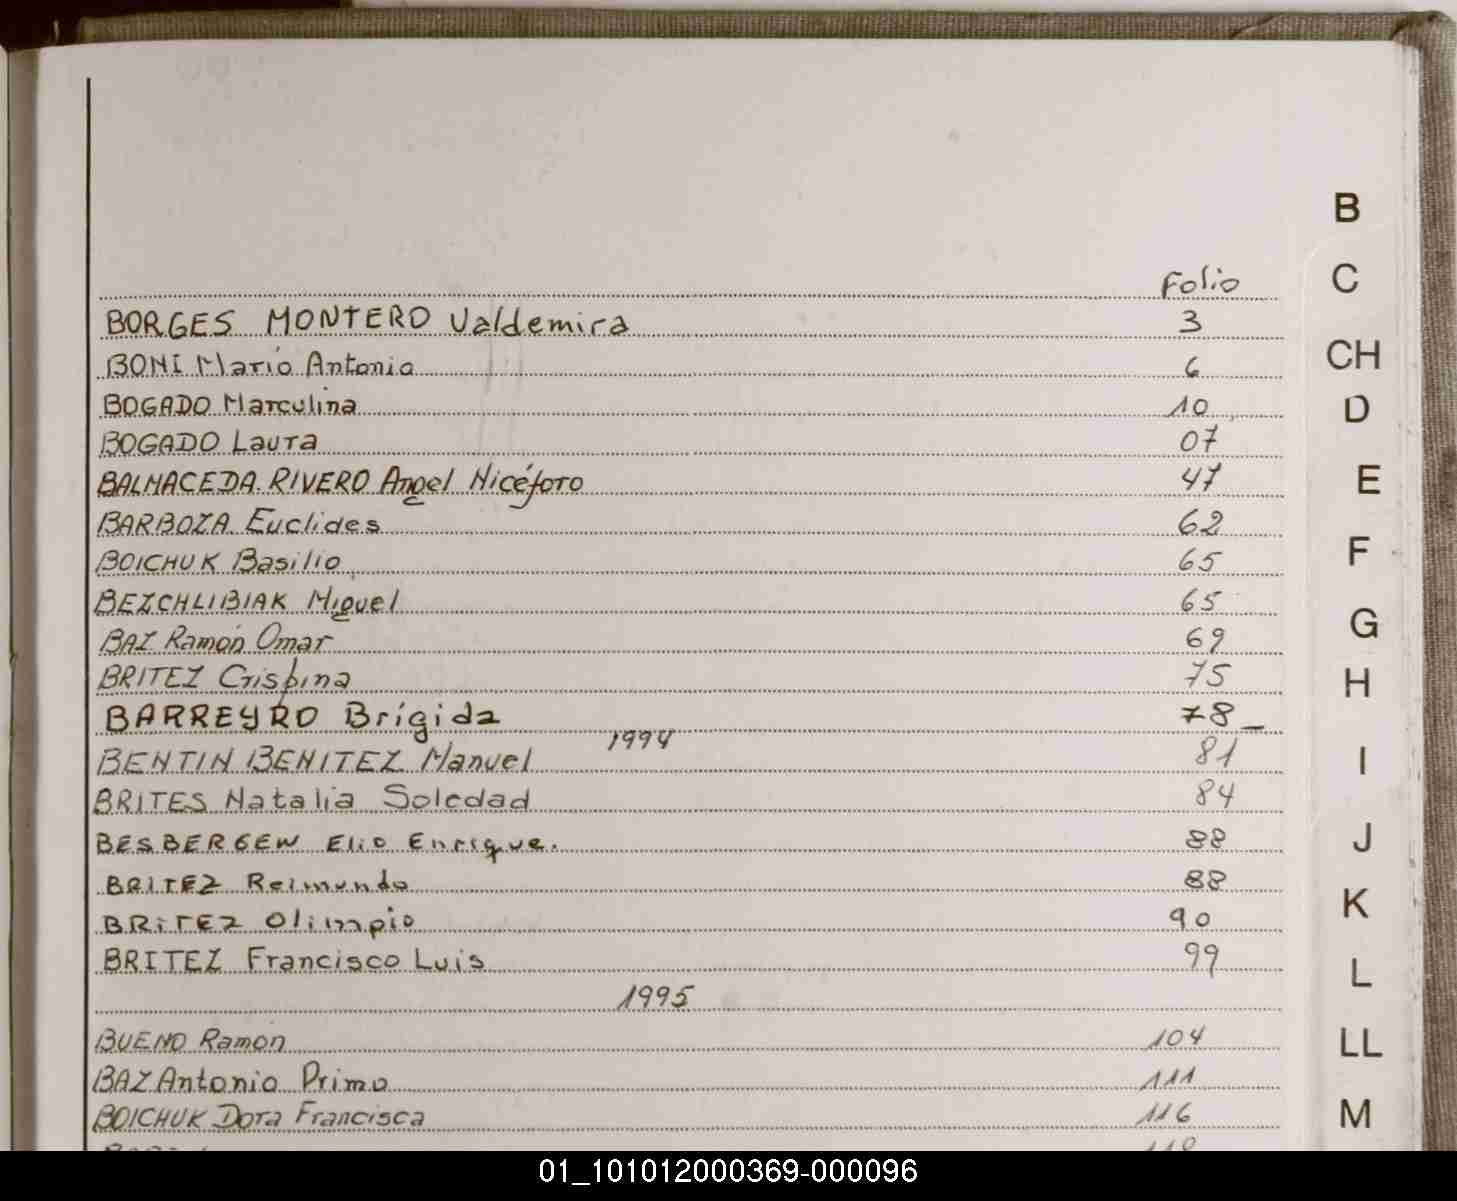 Folio
BORGES MONTERO Valdemira 3
BONI Mario Antonio 6
BOGADO Marculina 10
BOGADO Laura 07
BALMACEDA RIVERO Angel Nicéforo 47
BARBOZA Euclides 62
BOICHUK Basilio 65
BEZCHLIBIAK Miguel 65
BAZ Ramón Omar 69
BRITEZ Crispina 75
BARREYRO Brígida 78
1994
BENTIN BENITEZ Manuel 81
BRITES Natalia Soledad 84
BESBERGEN Elio Enrique. 88
BRITEZ Reimundo 88
BRITEZ Olimpio 90
BRITEZ Francisco Luis 99
1995
BUENO Ramón 104
BAZ Antonio Primo 111
BOICHUK Dora Francisca 116
B
C
CH
D
E
F
G
H
I
J
K
L
LL
M
01_101012000369-000096